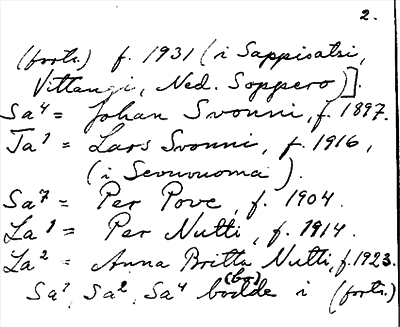 2.
(forts.) f. 1931 (i Sappisatsi,
Vittangi, Ned. Soppero)].
Sa⁴ = Johan Svonni, f. 1897.
Ta¹ = Lars Svonni, f. 1916,
(i Seouvuoma).
Sa⁷ = Per Pove, f. 1904.
La¹ = Per Nutti, f. 1914.
La² = Anna Britta Nutti, f. 1923.
Sa¹, Sa², Sa⁴ bodde (bo) i (forts.)